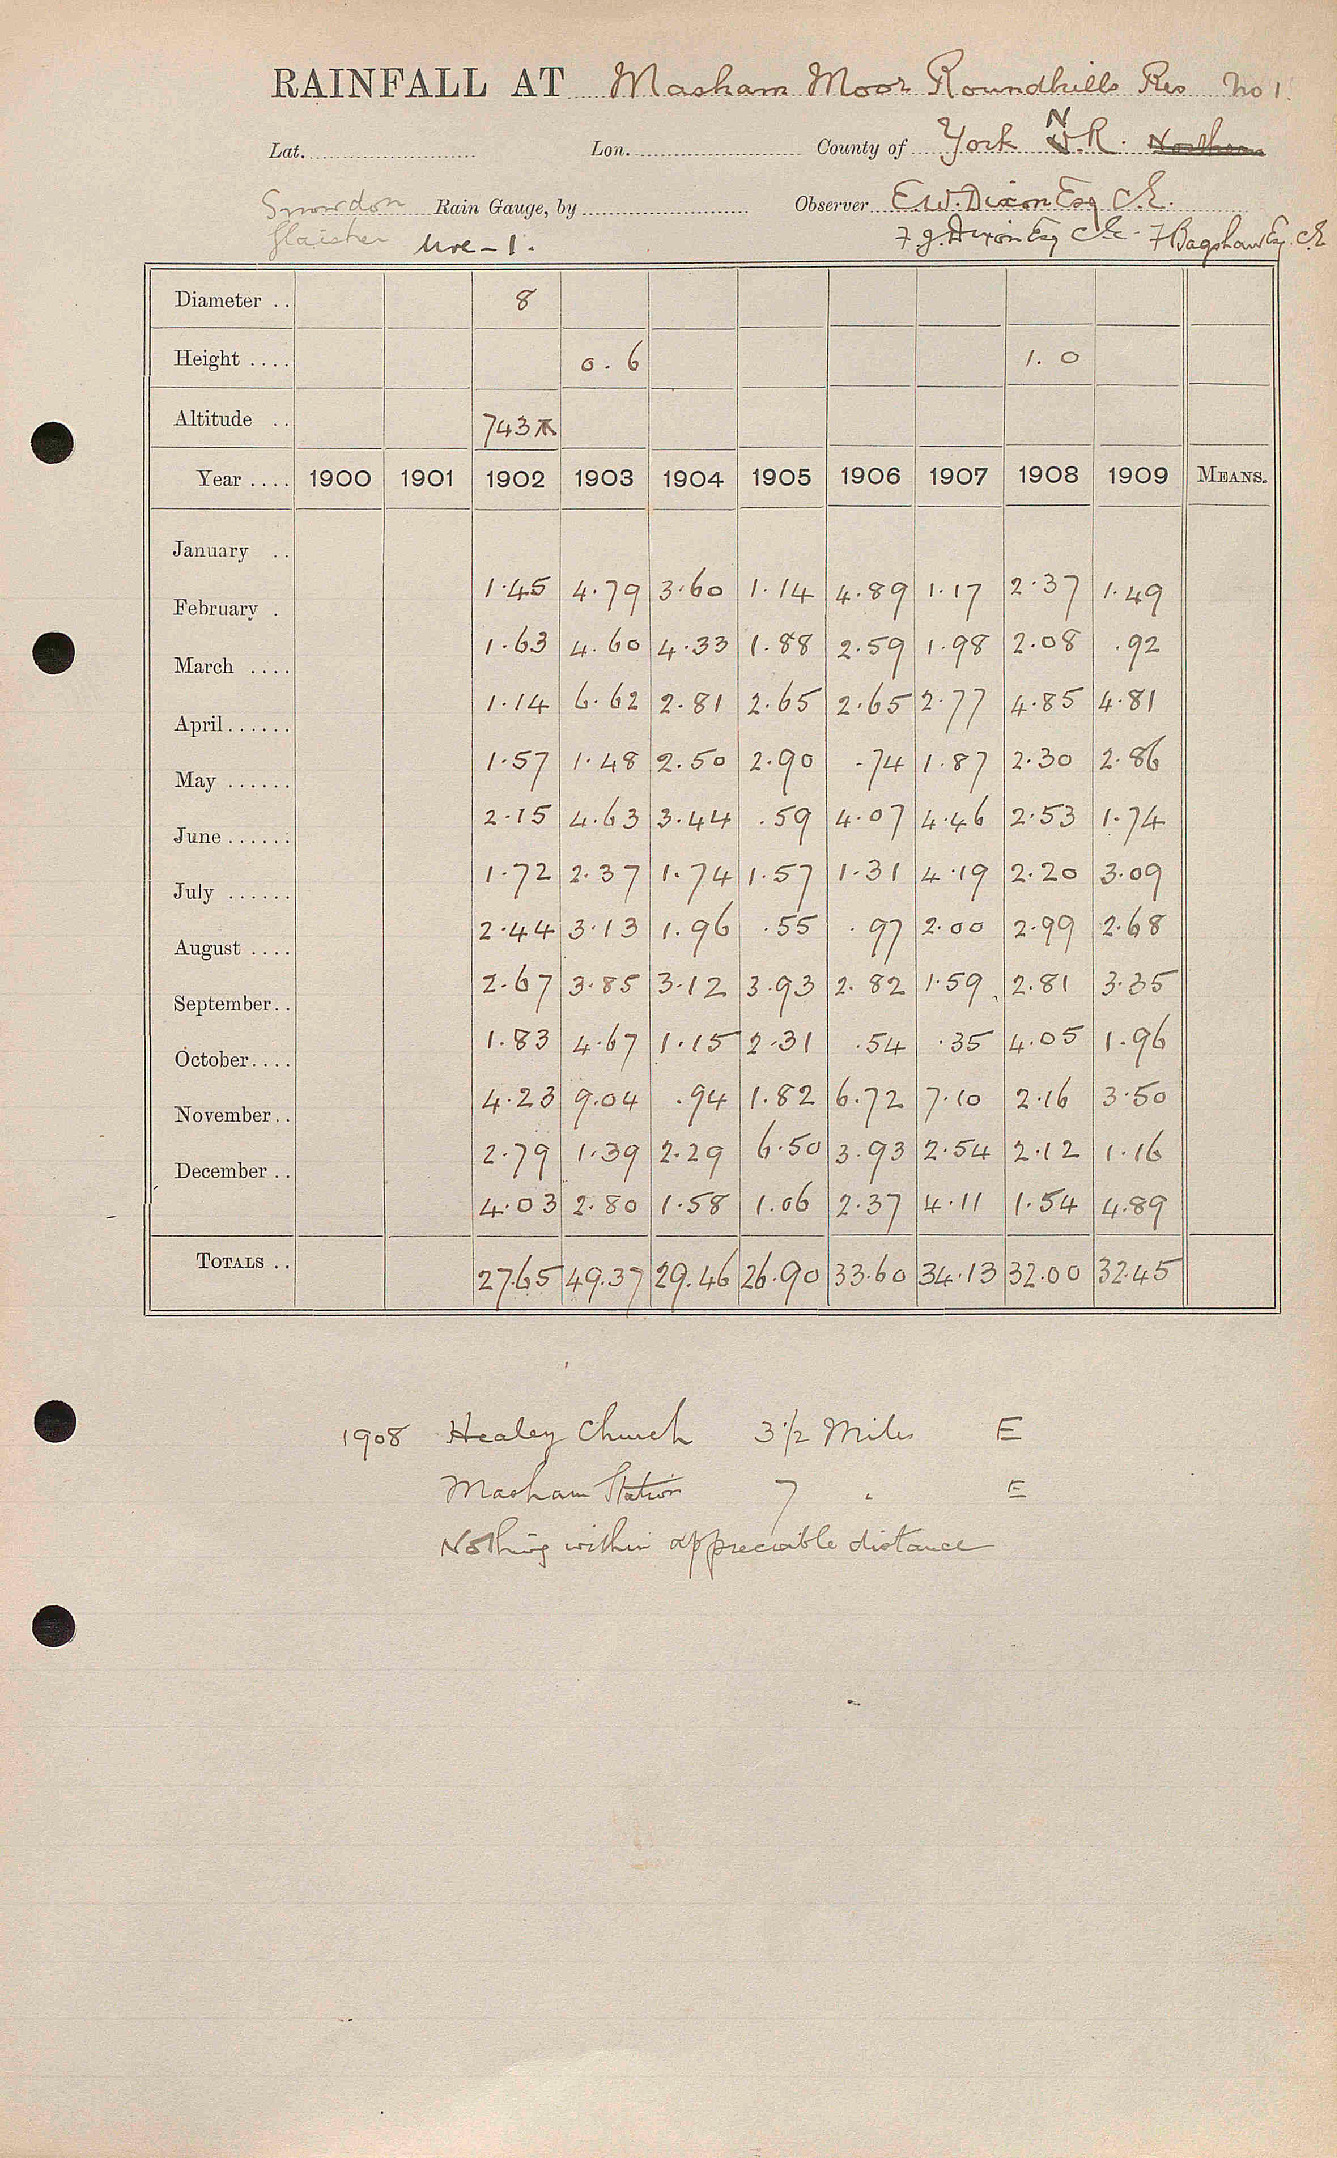 RAINFALL AT Masham Moor Roundhills Res No 1.
Lat. Lon. County of York N.R. Northern
Snowdon Rain Gauge, by Observer E.W. Dixon Esq C.E.
Glaisher Ure - 1. F.J. Dixon Esq C.E. - F Bagshaw Esq. C.E
Diameter .. 8
Height .... 0.6 1.0
Altitude .. 743
Year .... 1900 1901 1902 1903 1904 1905 1906 1907 1908 1909 MEANS.
January .. 1.45 4.79 3.60 1.14 4.89 1.17 2.37 1.49
February . 1.63 4.60 4.33 1.88 2.59 1.98 2.08 .92
March .... 1.14 6.62 2.81 2.65 2.65 2.77 4.85 4.81
April...... 1.57 1.48 2.50 2.90 .74 1.87 2.30 2.86
May ...... 2.15 4.63 3.44 .59 4.07 4.46 2.53 1.74
June...... 1.72 2.37 1.74 1.57 1.31 4.19 2.20 3.09
July ...... 2.44 3.13 1.96 .55 .97 2.00 2.99 2.68
August .... 2.67 3.85 3.12 3.93 2.82 1.59 2.81 3.35
September.. 1.83 4.67 1.15 2.31 .54 .35 4.05 1.96
October.... 4.23 9.04 .94 1.82 6.72 7.10 2.16 3.50
November.. 2.79 1.39 2.29 6.50 3.93 2.54 2.12 1.16
December .. 4.03 2.80 1.58 1.06 2.37 4.11 1.54 4.89
TOTALS .. 27.65 49.37 29.46 26.90 33.60 34.13 32.00 32.45
1908 Healey Church 3 1/2 Miles E
Masham Station 7 " E
Nothing within appreciable distance